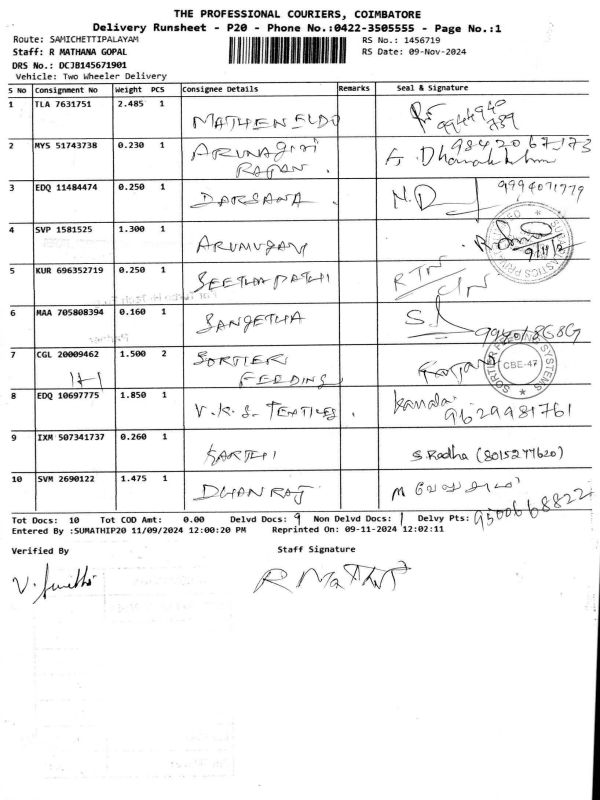 THE PROFESSIONAL COURIERS, COIMBATORE
Delivery Runsheet - P20 - Phone No.:0422-3505555 - Page No.:1
Route: SAMICHETTIPALAYAM
RS No.: 1456719
Staff: R MATHANA GOPAL
RS Date: 09-Nov-2024
DRS No.: DCJB145671901
Vehicle: Two Wheeler Delivery
S No Consignment No Weight PCS Consignee Details Remarks Seal & Signature
1 TLA 7631751 2.485 1 MATHEN ELDO 9944940
789
2 MYS 51743738 0.230 1 ARUNAGIRI 9842067173
RAJAN.
3 EDQ 11484474 0.250 1 DARSANA N.D 9994071779
4 SVP 1581525 1.300 1 ARUMUGAM
5 KUR 696352719 0.250 1 SEETHAPATHI RTN
6 MAA 705808394 0.160 1 SANGETHA
7 CGL 20009462 1.500 2 SORTIER
1+1 FEEDING
CBE-47
SORTIER FEEDING SYSTEMS
8 EDQ 10697775 1.850 1 V.K.S. TEXTILES. Kamala
9629981761
9 IXM 507341737 0.260 1 KARTHI S.Radha (8015277620)
10 SVM 2690122 1.475 1 DHANRAJ M
9500668822
Tot Docs: 10 Tot COD Amt: 0.00 Delvd Docs: 9 Non Delvd Docs: 1 Delvy Pts:
Entered By :SUMATHIP20 11/09/2024 12:00:20 PM Reprinted On: 09-11-2024 12:02:11
Verified By Staff Signature